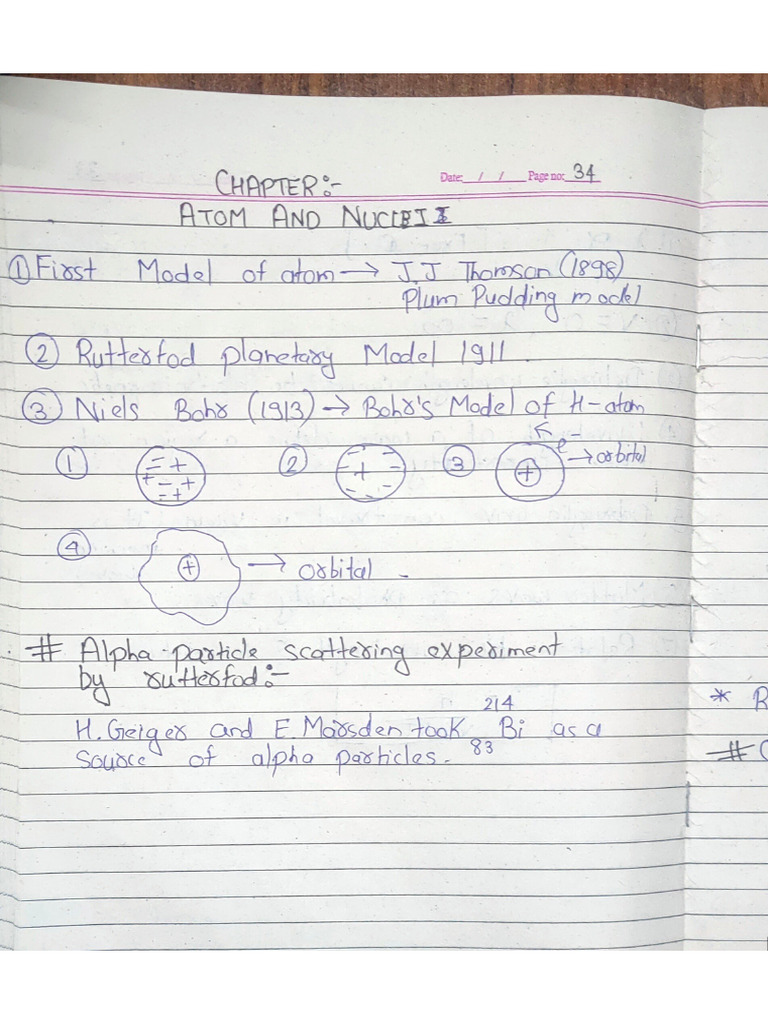 Date: / / Page no: 34
CHAPTER:-
ATOM AND NUCLEII
① First Model of atom → J.J Thomson (1898)
Plum Pudding model
② Rutterfod planetary Model 1911.
③ Niels Bohr (1913) → Bohr's Model of H-atom
① - + + - + - + ② + - - - - - - ③ + e- → orbital
④ + → orbital -
# Alpha-particle scattering experiment
by rutterfod:-
H. Geiger and E. Marsden took ²¹⁴₈₃Bi as a
source of alpha particles.
* R
#